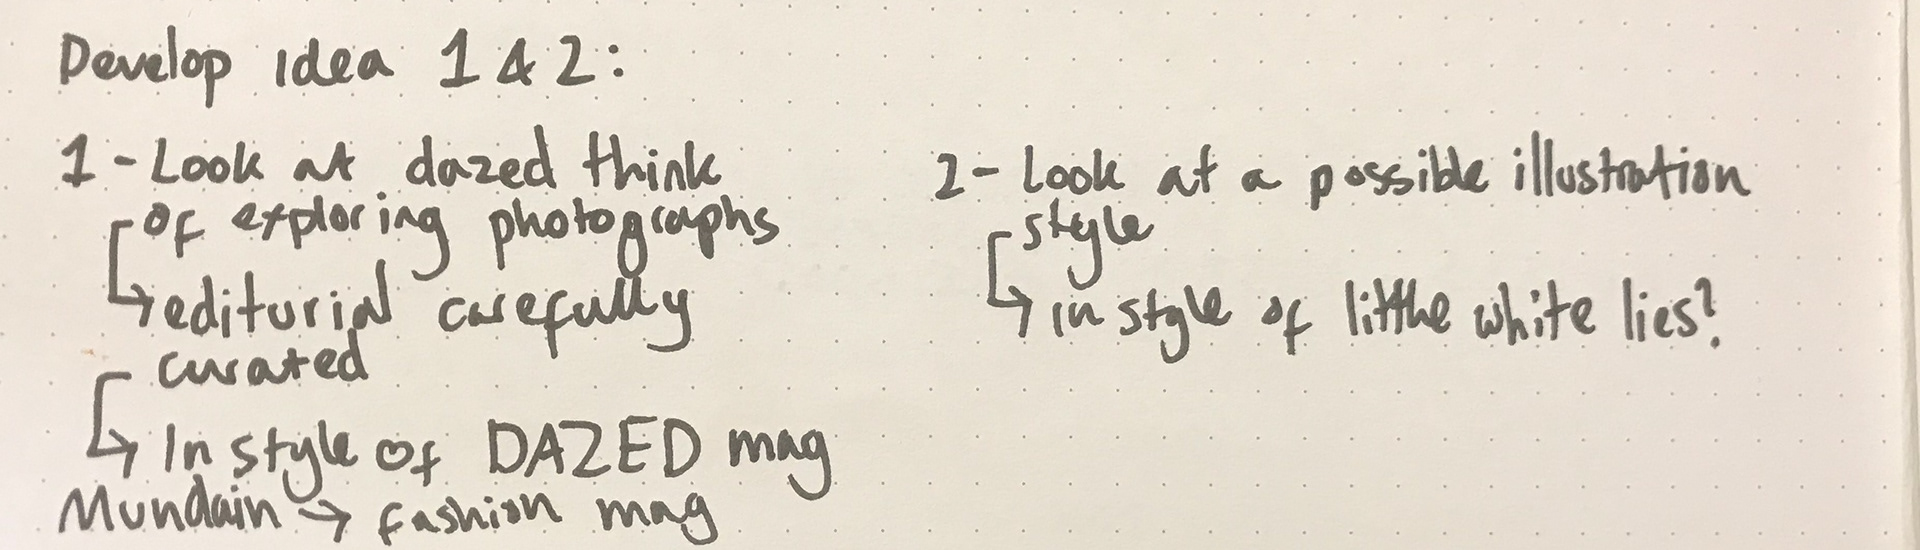 Develop idea 1 & 2:
1 - Look at dazed think
of exploring photographs
↳ editorial carefully
curated
↳ In style of DAZED mag
Mundain → fashion mag
2 - Look at a possible illustration
style
↳ in style of little white lies?